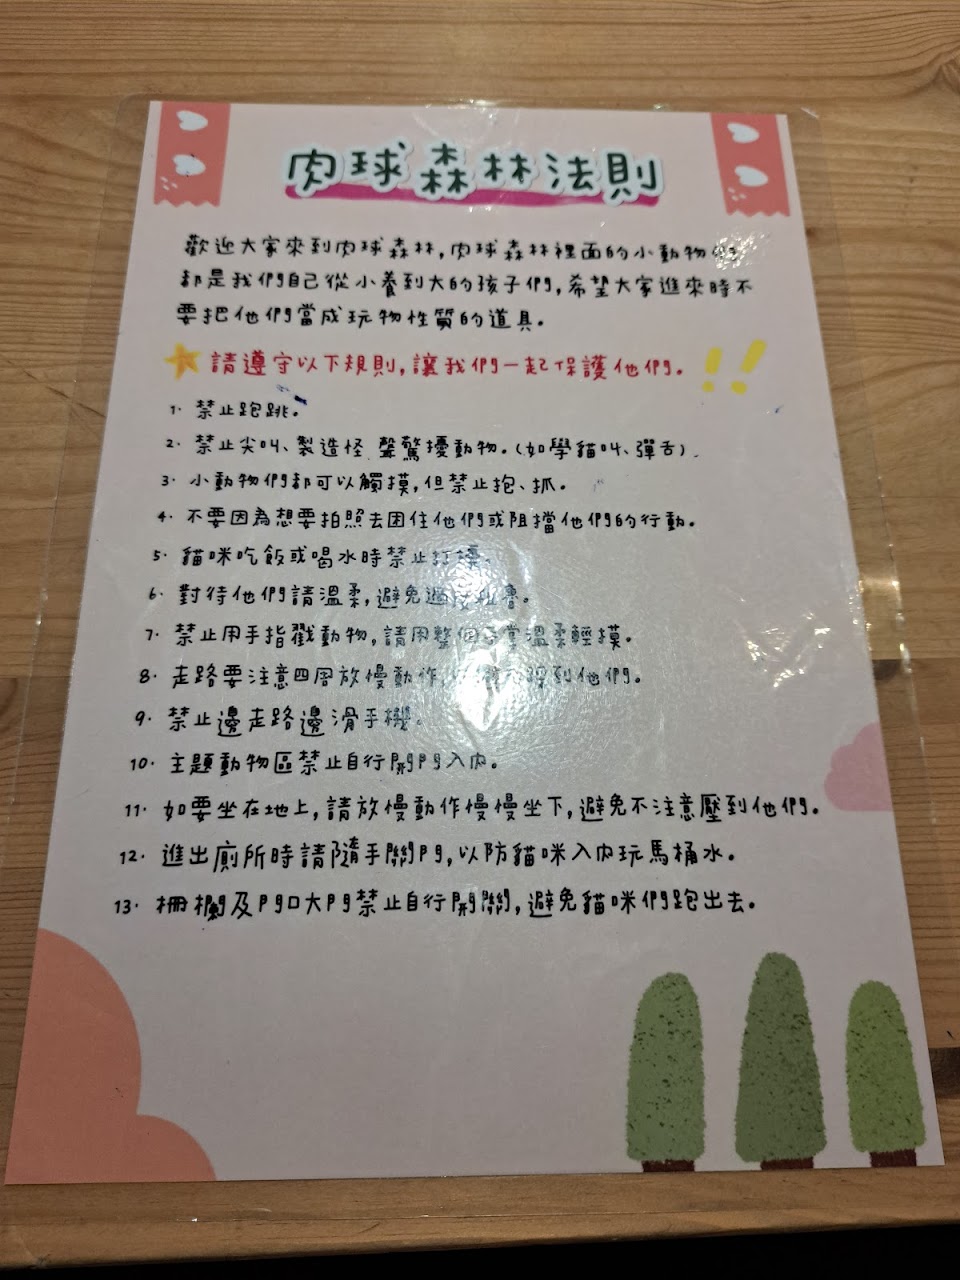 肉球森林法則
歡迎大家來到肉球森林,肉球森林裡面的小動物們
都是我們自己從小養到大的孩子們,希望大家進來時不
要把他們當成玩物性質的道具。
請遵守以下規則,讓我們一起保護他們。!!
1. 禁止跑跳。
2. 禁止尖叫、製造怪聲驚擾動物。(如學貓叫、彈舌)
3. 小動物們都可以觸摸,但禁止抱、抓。
4. 不要因為想要拍照去困住他們或阻擋他們的行動。
5. 貓咪吃飯或喝水時禁止打擾。
6. 對待他們請溫柔,避免過度粗魯。
7. 禁止用手指戳動物,請用整個手掌溫柔輕摸。
8. 走路要注意四周放慢動作 到他們。
9. 禁止邊走路邊滑手機。
10. 主題動物區禁止自行開門入內。
11. 如要坐在地上,請放慢動作慢慢坐下,避免不注意壓到他們。
12. 進出廁所時請隨手關門,以防貓咪入內玩馬桶水。
13. 柵欄及門口大門禁止自行開關,避免貓咪們跑出去。